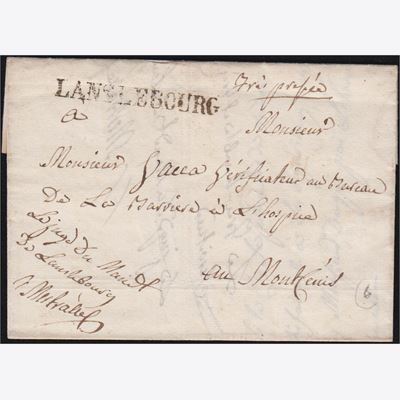 LANSLEBOURG
très pressée
à
Monsieur
Monsieur Vacca Vérificateur au Bureau
De La Barrière à L'hospice
au Montcenis
Le juge du
De Lanslebourg
6